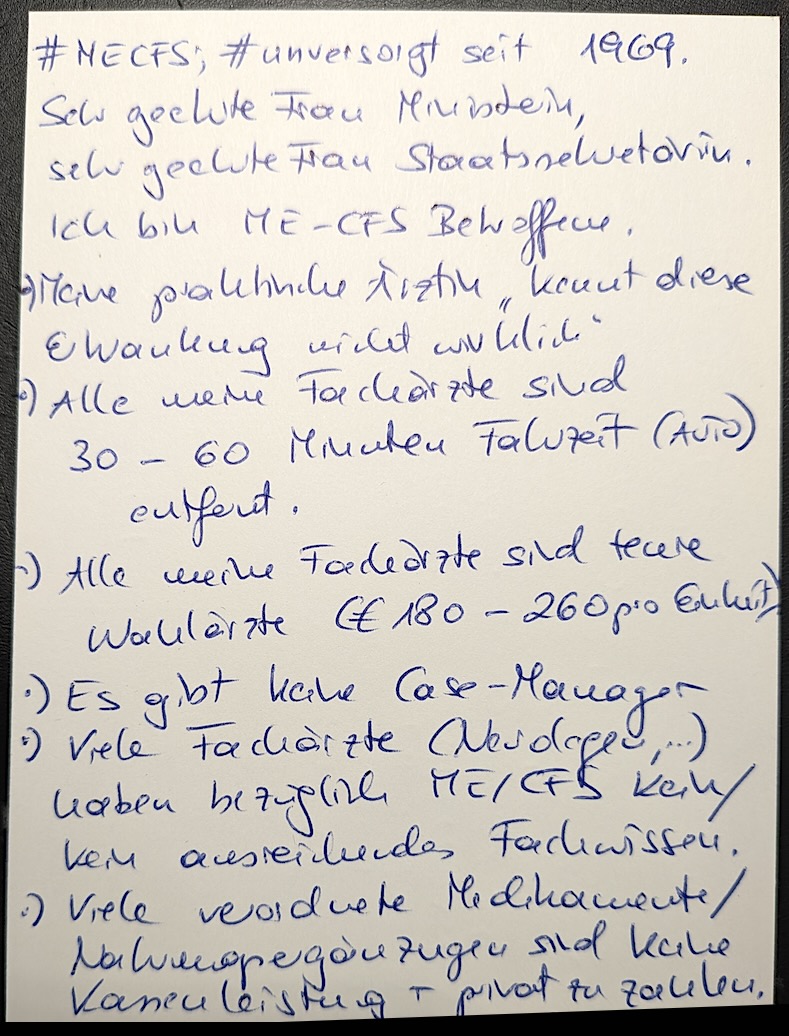 #MECFS; #unversorgt seit 1969.
Sehr geehrte Frau Ministerin,
sehr geehrte Frau Staatssekretärin.
Ich bin ME-CFS Betroffene.
•) Meine praktische Ärztin „kennt diese
Erkrankung nicht wirklich“
•) Alle meine Fachärzte sind
30 - 60 Minuten Fahrzeit (Auto)
entfernt.
•) Alle meine Fachärzte sind teure
Wahlärzte (€ 180 - 260 pro Einheit)
•) Es gibt keine Case-Manager
•) Viele Fachärzte (Neurologen,...)
haben bezüglich ME/CFS kein/
kein ausreichendes Fachwissen.
•) Viele verordnete Medikamente/
Nahrungsergänzugen sind keine
Kassenleistung - privat zu zahlen.